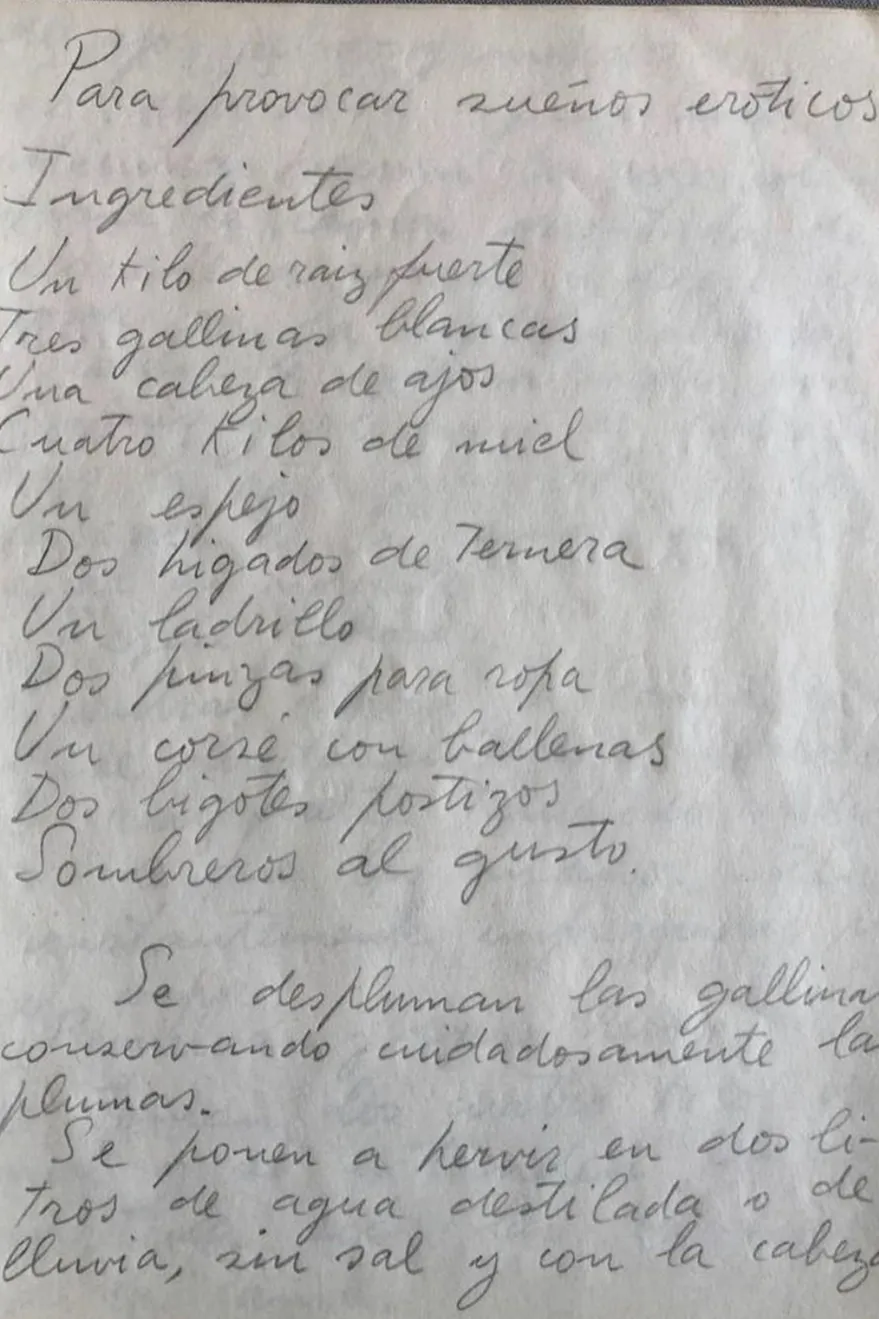 Para provocar sueños eróticos
Ingredientes
Un Kilo de raiz fuerte
Tres gallinas blancas
Una cabeza de ajos
Cuatro Kilos de miel
Un espejo
Dos higados de Ternera
Un ladrillo
Dos pinzas para ropa
Un corsé con ballenas
Dos bigotes postizos
Sombreros al gusto.
Se despluman las gallina
conservando cuidadosamente la
plumas.
Se ponen a hervir en dos li-
tros de agua destilada o de
lluvia, sin sal y con la cabeza